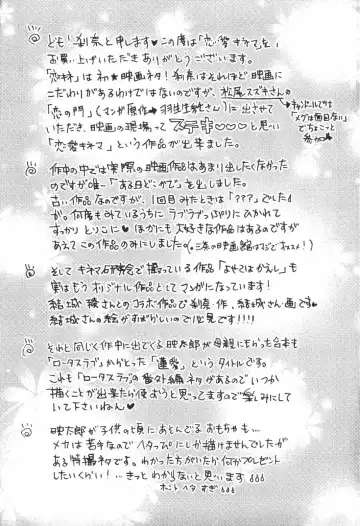 ども！刹奈と申します♥この度は「恋愛キネマ」を、
お買い上げいただきありがとうございます。
「恋キネ」は初★映画ネタ！刹奈はそれほど映画に
こだわりがあるわけではないのですが、松尾スズキさんの
「恋の門」(マンガ原作→羽生生純さん)に出させて
いただき、映画の現場って ステキ♡♡♡と思い
「恋愛キネマ」が出来ました。
キャシャーンでは
「メグは
でちょこっと
参加
作中の中では実際の映画作品はあまり出したくなかった
のですが唯一「ある日どこかで」を出しました。
古い作品なのですが、1回目みたときは「???」でした
が。何度もみているうちにラブラブっぷりにひかれて
すっかりとりこに♥ほかにも大好きな作品はあるのですが
あえてこの作品のみにしました(。三茶の映画館はマジでオススメ！)
そしてキネマ研究会で撮っている作品「よせてはかえし」も
実はもうオリジナル作品としてマンガになっています！
結城 さんとのコラボ作品で刹奈・作、結城さん・画です♥
結城さんの絵がすばらしいので必見です!!!!
それと同じく作中に出てくる映太郎が母親にもらった台本も
「ロータスラブ」からとった「蓮愛」というタイトルです。
これも「ロータスラブ」の番外編ネタがあるのでいつか
描くことが出来たら使おうと思ってますので楽しみにして
いて下さいねん♥
映太郎が子供の頃にあそんでるおもちゃも…
メカは苦手なのでヘタっぴにしか描けませんでしたが
ある特撮ネタです。わかった方がいたら何かプレゼント
したいくらい！…きっとわからないと思います
ホントヘタすぎ